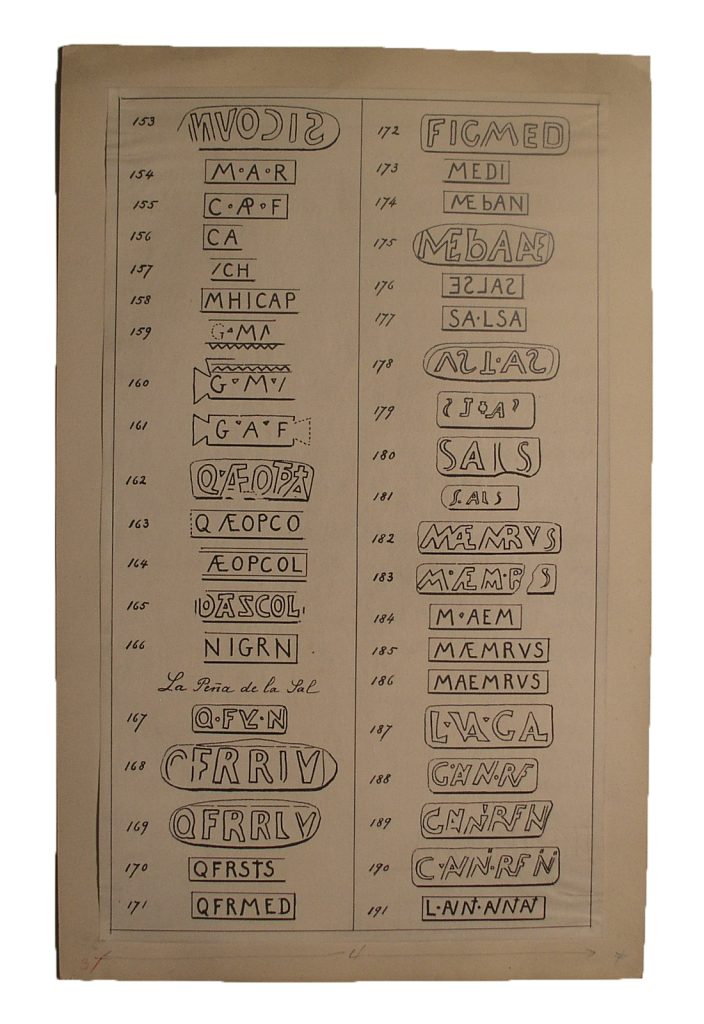 153 SICOVN
154 M•A•R
155 C•ÆP•F
156 CA
157 /CH
158 MHICAP
159 G•MA
160 G•M•/
161 G•A•F
162
163 Q ÆOPCO
164 ÆOPCOL
165 DAZCOL
166 NIGRN
La Peña de la Sal
167
168 FRRIV
169 QFRRLV
170 QFRSTS
171 QFRMED
172 FIGMED
173 MEDI
174 ÆbAN
175 MEbANÆ
176 SALSE
177 SA•LSA
178
179
180 SALS
181 S.ALS
182 MÆMRVS
183 M•ÆM•R S
184 M•AEM
185 MÆMRVS
186 MAEMRVS
187 L•VA•GA
188
189
190
191